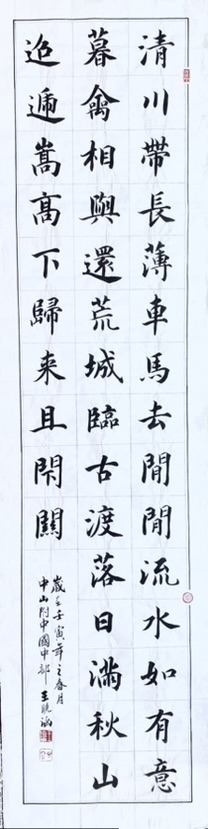 清川帶長薄車馬去閒閒流水如有意
暮禽相與還荒城臨古渡落日滿秋山
迢遞嵩高下歸来且閇關
歲在壬寅年之春月
中山附中國中部 王